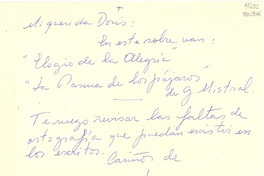 +
Mi querida Doris:
En este sobre van:
"Elogio de la Alegría"
"La Pascua de los pájaros"
de G Mistral.
Te ruego revisar las faltas de
ortografía que puedan existir en
los escritos. Cariños de